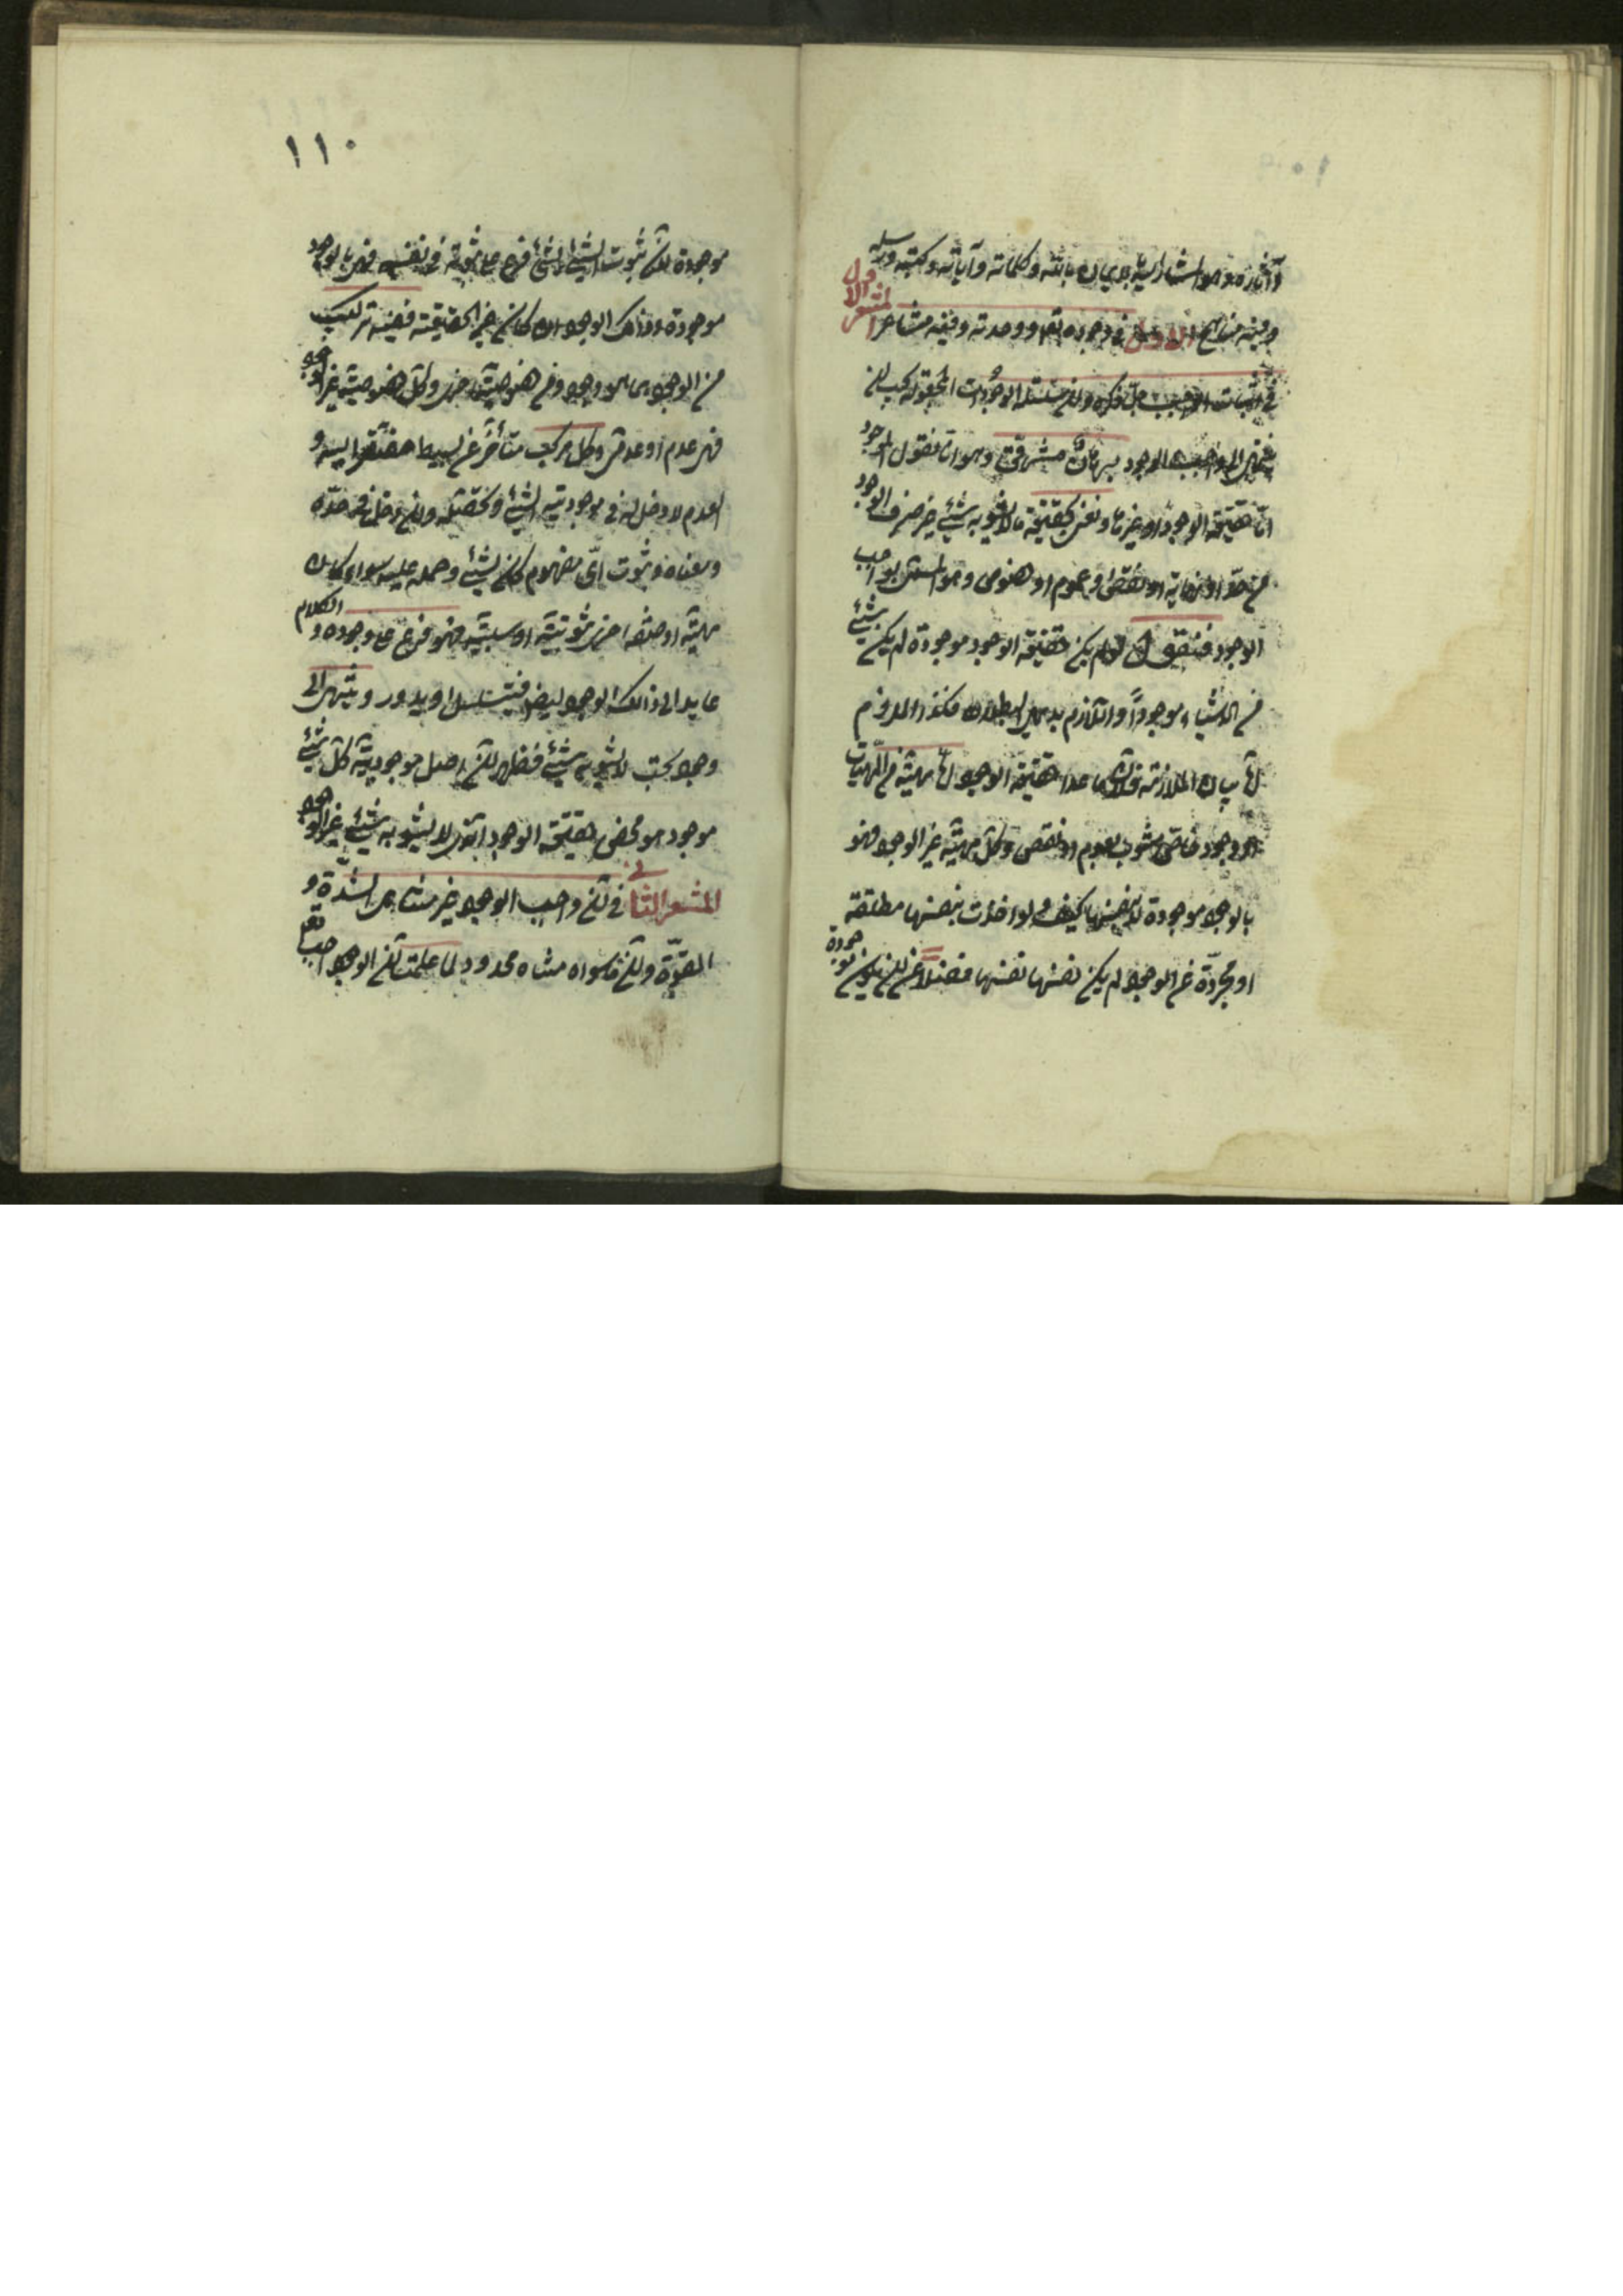 وآثاره وهو المشار اليه بالايمان بالله وكلماته وآياته وكتبه ورسله
وفيه مناهج الاول في وجوده تعالى ووحدته وفيه مشاعر المشعر الاول
في اثبات الواجب جل ذكره وان سلسلة الموجودات المجعولة يجب ان
ينتهى الى واجب الوجود برهان مشرقى وهو انا نقول الموجود
اما حقيقة الوجود او غيرها ونعنى بحقيقة ما لا يشوبه شئ غير صرف الوجود
من حد او نهاية او نقص او عموم او خصوص وهو المسمى بواجب
الوجود فنقول لو لم يكن حقيقة الوجود موجودة لم يكن شئ
من الاشياء موجوداً واللازم بديهى البطلان فكذا الملزوم
اما بيان الملازمة فلان ما عدا حقيقة الوجود اما مهية من المهيات
او وجود خاص مشوب بعدم او نقص وكل مهية غير الوجود فهو
بالوجود موجودة لا بنفسها كيف ولو اخذت بنفسها مطلقة
او مجردة عن الوجود لم يكن نفسها نفسها فضلا عن ان يكون موجودة
١١٠
موجودة لان ثبوت الشئ لشئ فرع على ثبوته فى نفسه فهى بالوجود
موجودة وذلك الوجود ان كان غير الحقيقة ففيه تركيب
من الوجود بما هو وجود ومن خصوصية اخرى وكل خصوصية غير الوجود
فهى عدم او عدمى وكل مركب متأخر عن بسيطه مفتقر اليه و
العدم لا دخل له فى موجودية الشئ وتحصله وان دخل فى حده
ومعناه وثبوت اى مفهوم كان لشئ وحمله عليه سواء كان
مهية او صفة اخرى ثبوتية او سلبية فهو فرع على وجوده و الكلام
عايد الى ذلك الوجود ايضا فيتسلسل او يدور او ينتهى الى
وجود بحت لا يشوبه شئ فظهر ان اصل موجودية كل شئ
موجود هو محض حقيقة الوجود الذى لا يشوبه شئ غير الوجود
المشعر الثانى فى ان واجب الوجود غير متناهى الشدة و
القوة وان ما سواه متناه محدود لما علمت ان الواجب تعالى